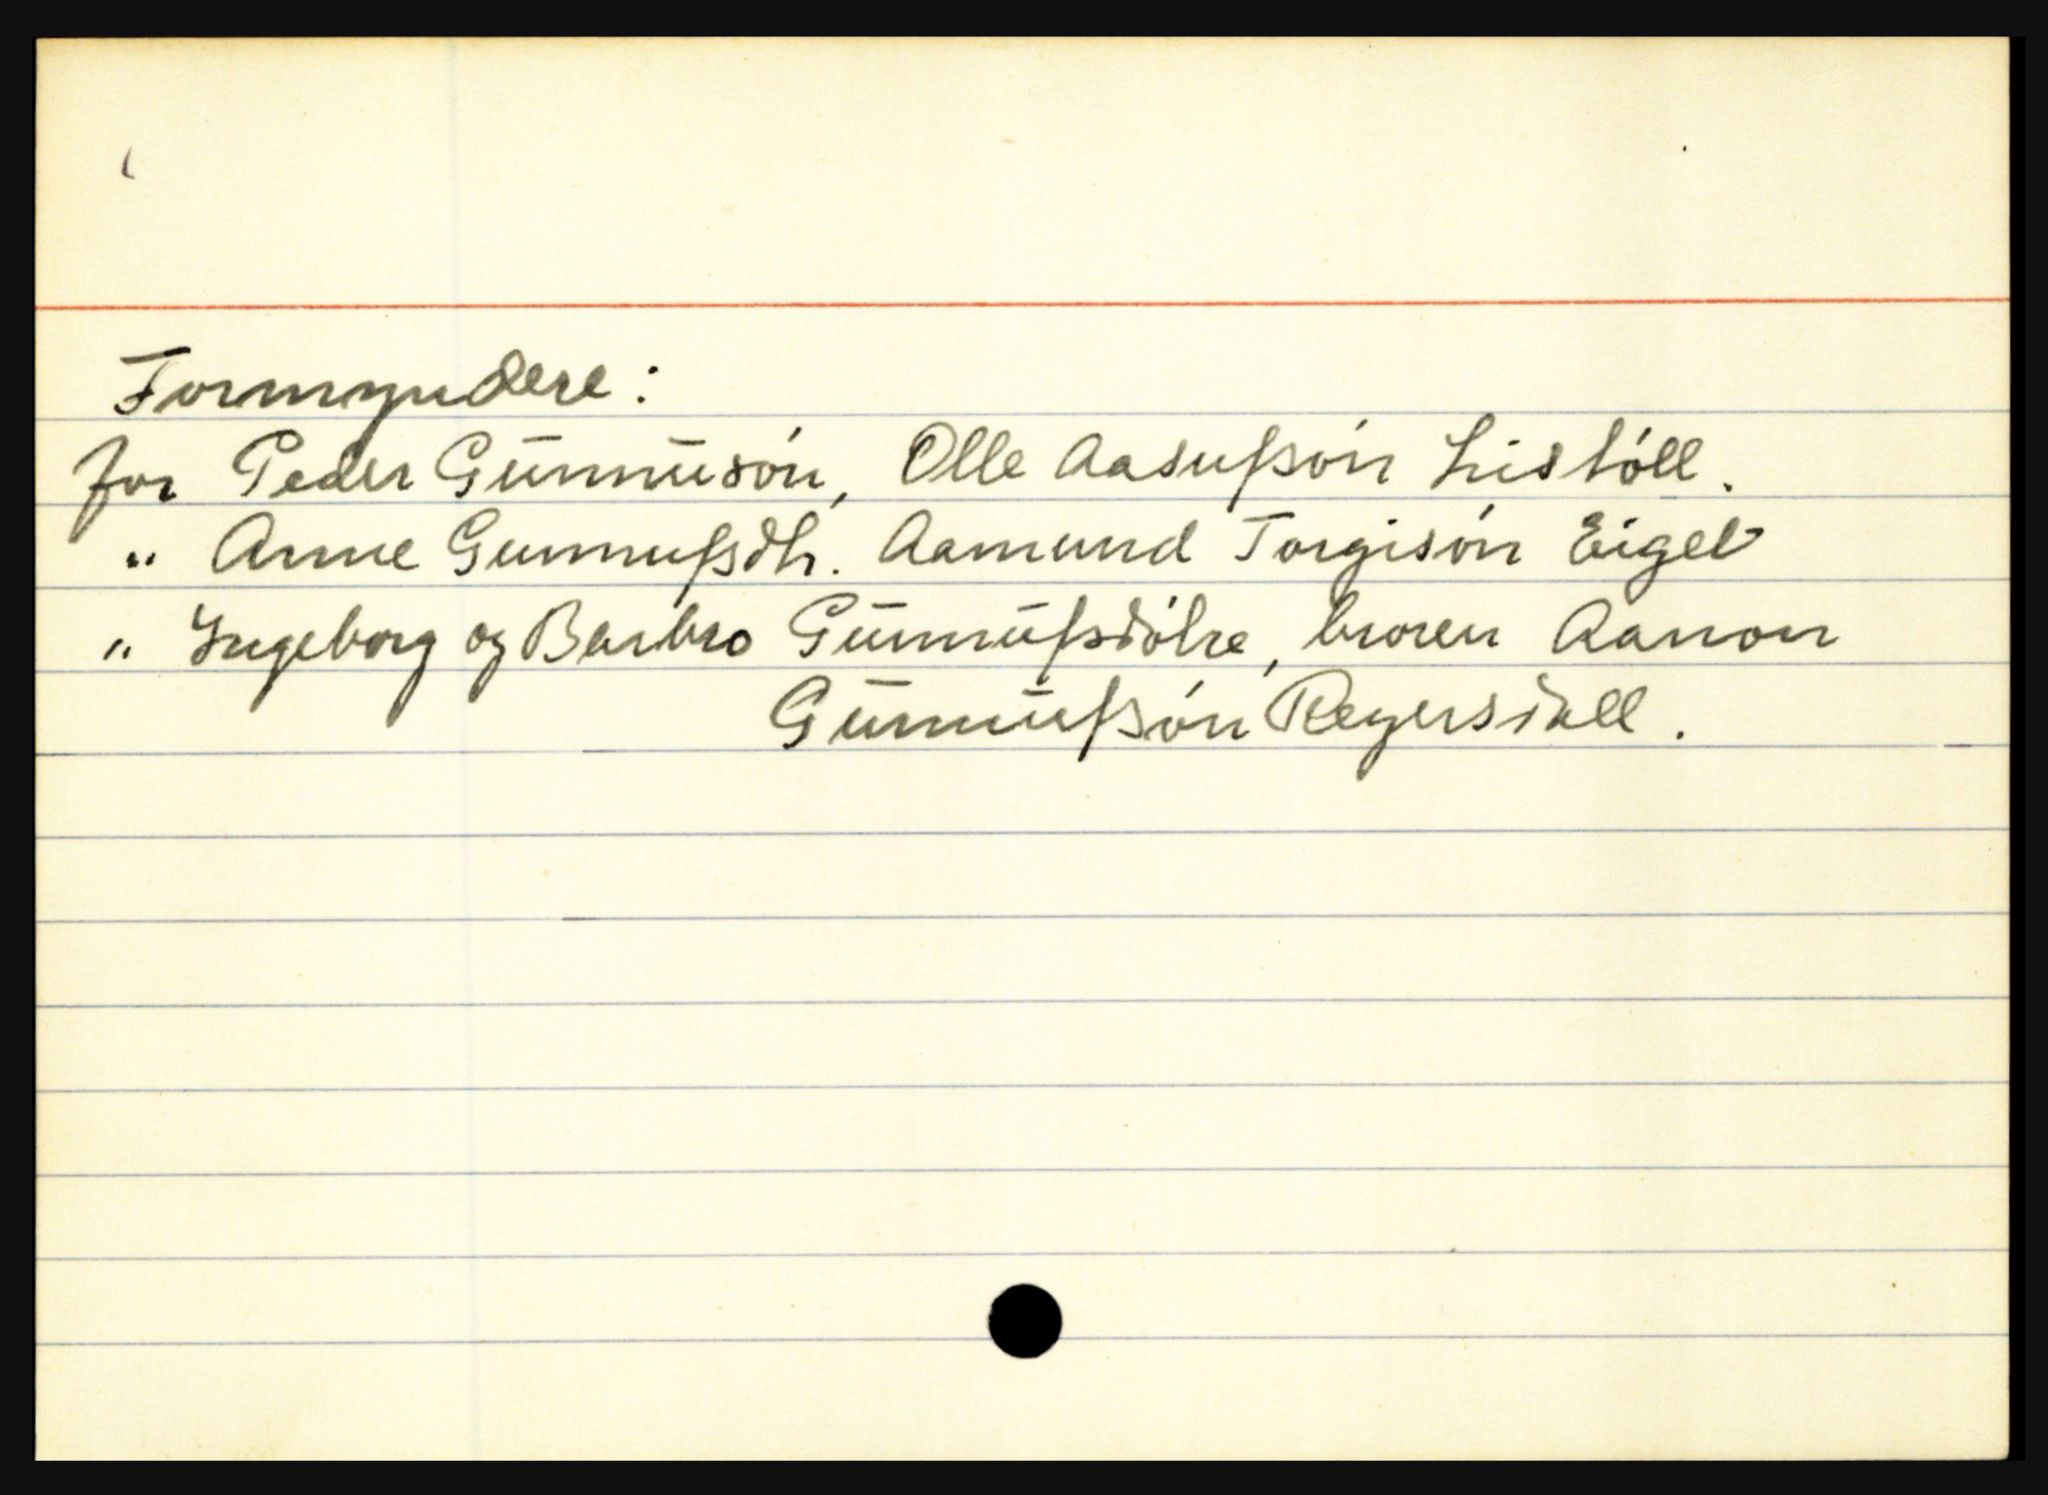 Formyndere:
for Peder Gūnnūsón, Olle Aasufssón Listóll.
" Anne Gunnufsdtr. Aamund Torgisón Eigeb
" Ingeborg og Barbro Gūnnūfsdótre, broren Aanon
Gūnnūfssón Reyersdall.